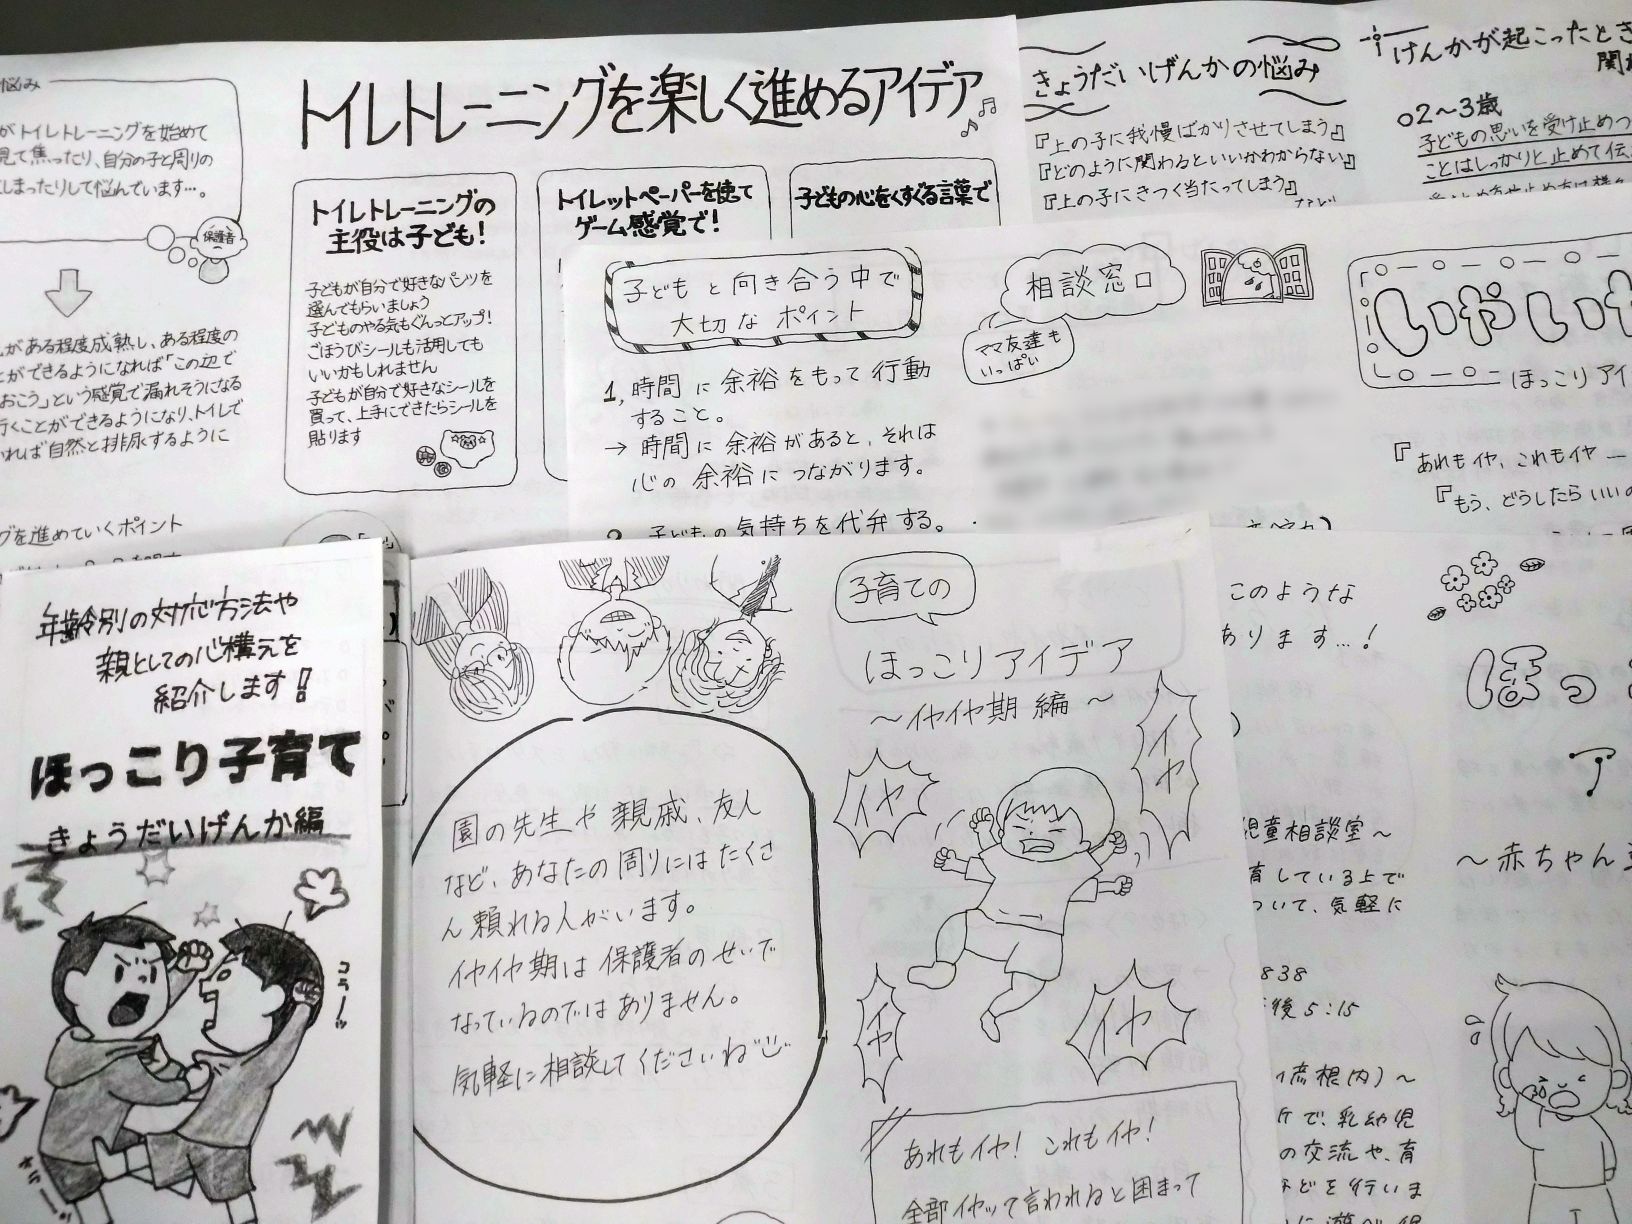 悩み
がトイレトレーニングを始めて
見て焦ったり、自分の子と周りの
しまったりして悩んでいます…。
保護者
がある程度成熟し、ある程度の
とができるようになれば「この辺で
おこう」という感覚で漏れそうになる
行くことができるようになり、トイレで
いれば自然と排尿するように
グを進めていくポイント
トイレトレーニングを楽しく進めるアイデア♪♬
トイレトレーニングの
主役は子ども!
子どもが自分で好きなパンツを
選んでもらいましょう
子どものやる気もぐんっとアップ!
ごほうびシールも活用しても
いいかもしれません
子どもが自分で好きなシールを
買って、上手にできたらシールを
貼ります
トイレットペーパーを使って
ゲーム感覚で!
子どもの心をくすぐる言葉で
きょうだいげんかの悩み
『上の子に我慢ばかりさせてしまう』
『どのように関わるといいかわからない』
『上の子にきつく当たってしまう』
など
けんかが起こったとき
関わ
○2～3歳
子どもの思いを受け止めつ
ことはしっかりと止めて伝
子どもと向き合う中で
大切なポイント
1, 時間に余裕をもって行動
すること。
→ 時間に余裕があると、それは
心の余裕につながります。
2 子どもの気持ちを代弁する。
相談窓口
ママ友達も
いっぱい
いやいや
ほっこりアイ
『あれもイヤ、これもイヤー
『もう、どうしたらいいの
年齢別の対応方法や
親としての心構元を
紹介します!
ほっこり子育て
きょうだいげんか編
コラーッ
園の先生や親戚、友人
など、あなたの周りにはたくさ
ん頼れる人がいます。
イヤイヤ期は保護者のせいで
なっているのではありません。
気軽に相談してくださいね
子育ての
ほっこりアイデア
～イヤイヤ期編～
イヤ
イヤ
イヤ
イヤ
あれもイヤ! これもイヤ!
全部イヤッて言われると困まって
このような
あります…!
児童相談室～
育している上で
ついて、気軽に
838
後5:15
彦根内)～
で、乳幼児
の交流や、育
などを行いま
ほっ
ア
～赤ちゃん